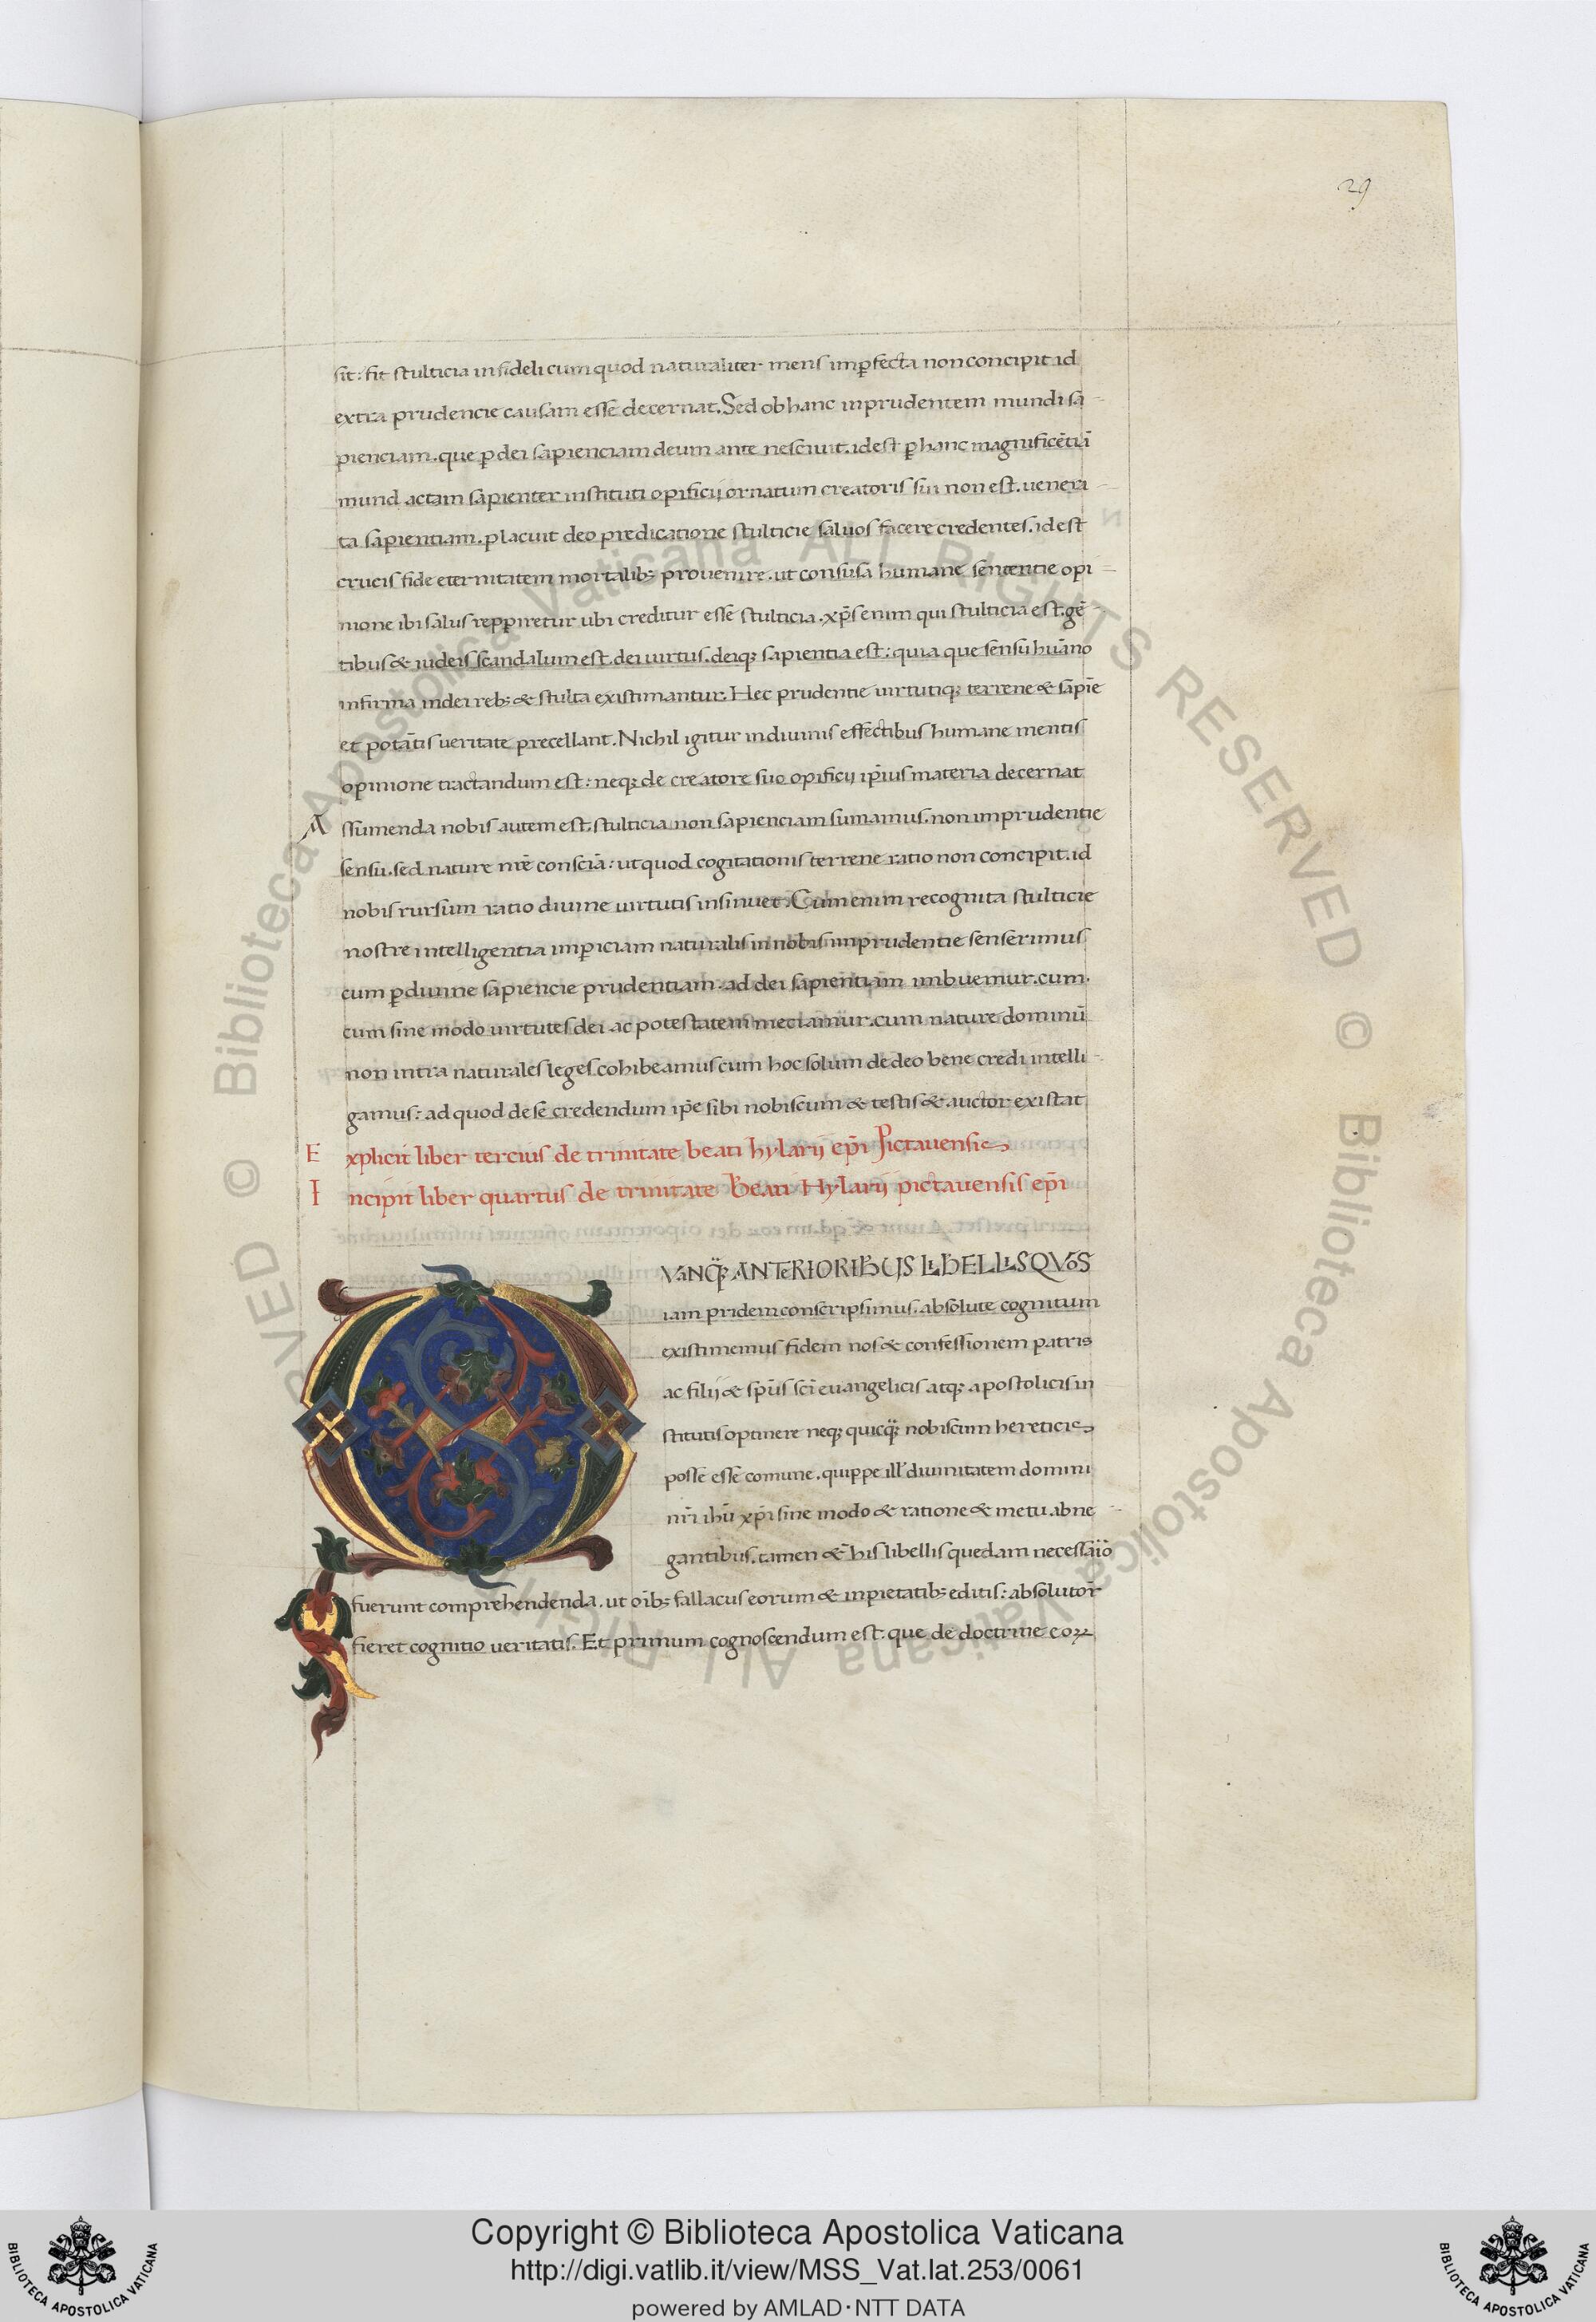 29
sit: fit stulticia insideli cum quod naturaliter mens imꝑfecta non concipit id
extra prudencie causam esse decernat. Sed ob hanc inprudentem mundi sa-
pienciam. que ꝑ dei sapienciam deum ante nesciuit. id est ꝑ hanc magnificētiā
mund actam sapienter instituti opificij ornatum creatoris sui non est. uenera-
ta sapientiam. placuit deo predicatione stulticie saluos facere credentes. id est
crucis fide eternitatem mortalib; prouenire. ut confusa humane sententie opi-
nione ibi salus repꝑiretur ubi creditur esse stulticia. xp̄s enim qui stulticia est. gē-
tibus & iudeis scandalum est. dei uirtus. deiq; sapientia est: quia que sensu huāno
infirma in dei reb; & stulta existimantur. Hec prudentie uirtutiq; terrene & sapiē
et potātis ueritate precellant. Nichil igitur in diuinis effectibus humane mentis
opinione tractandum est: neq; de creatore suo opificij ip̄ius materia decernat
A ssumenda nobis autem est. stulticia non sapienciam sumamus. non imprudentie
sensu. sed nature nr̄e consciā: ut quod cogitationis terrene ratio non concipit. id
nobis rursum ratio diuine uirtutis insinuet. Cum enim recognita stulticie
nostre intelligentia imꝑiciam naturalis in nobis imprudentie senserimus
cum ꝑ diuine sapiencie prudentiam. ad dei sapientiam imbuemur. cum.
cum sine modo uirtutes dei ac potestatem metiamur. cum nature dominū
non intra naturales leges cohibeamus cum hoc solum de deo bene credi intelli-
gamus: ad quod de se credendum ip̄e sibi nobiscum & testis & auctor existat
E xplicit liber tercius de trinitate beati hylarij ep̄i Pictauensis
I ncipit liber quartus de trinitate Beati Hylarij pictauensis ep̄i
Q VANQ̄; ANTERIORIBUS LIBELLIS QVOS
iam pridem conscripsimus. absolute cognitum
existimemus fidem nos & confessionem patris
ac filij & sp̄us sc̄i euangelicis atq; apostolicis in
stitutis optinere neq; quicq̄; nobiscum hereticis
posse esse comune. quippe ill' diuinitatem domini
nr̄i ihū xp̄i sine modo & ratione & metu. abne-
gantibus. tamen & his libellis quedam necessaio
fuerunt comprehendenda. ut oīb; fallacus eorum & inpietatib; editis: absolutor
fieret cognitio ueritatis. Et primum cognoscendum est. que de doctrine eoꝝ
Copyright © Biblioteca Apostolica Vaticana
http://digi.vatlib.it/view/MSS_Vat.lat.253/0061
powered by AMLAD·NTT DATA
BIBLIOTECA APOSTOLICA VATICANA
BIBLIOTECA APOSTOLICA VATICANA
© Biblioteca Apostolica Vaticana ALL RIGHTS RESERVED © Biblioteca Apostolica Vaticana ALL RIGHTS RESERVED